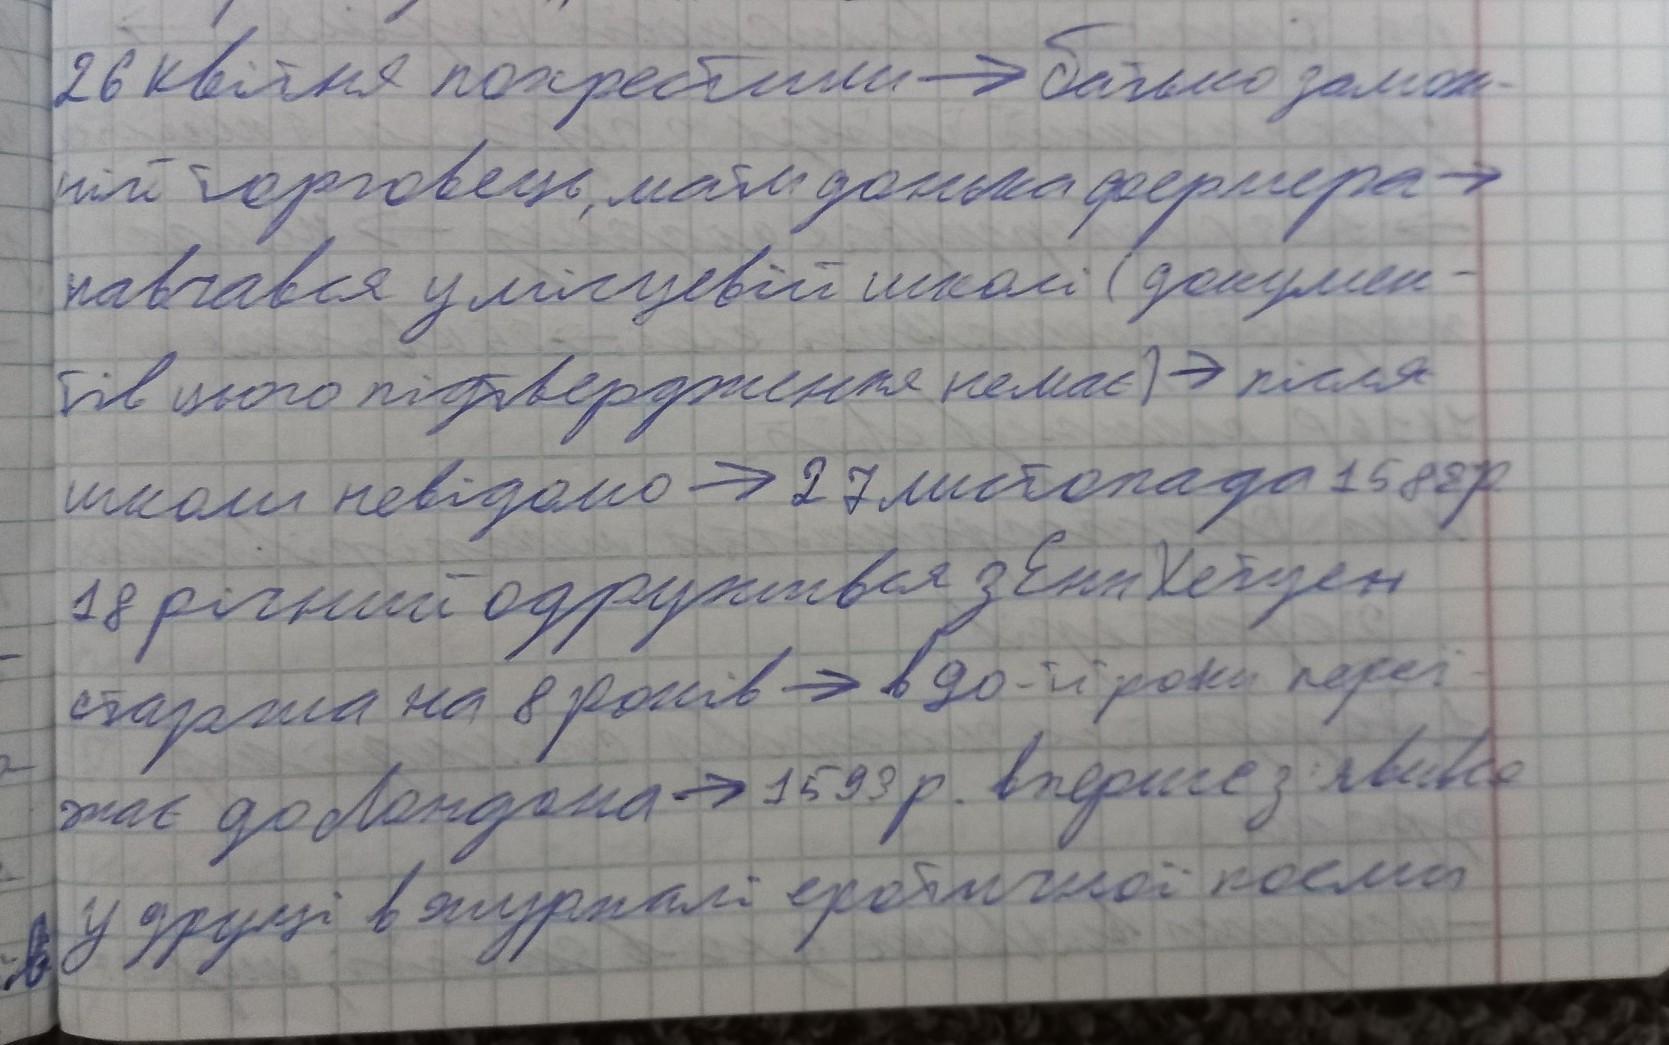 26 квітня похрестили → батько замож-
ній торговець, мати донька фермера →
навчався у місцевій школі (докумен-
тів цього підтвердження немає) → після
школи невідомо → 27 листопада 1582р
18 річний одружився з Енн Хетуен
старша на 8 років → в 90-ті роки переї-
жає до Лондона → 1593 р. вперше з'явився
у друці в журналі еротичної поеми